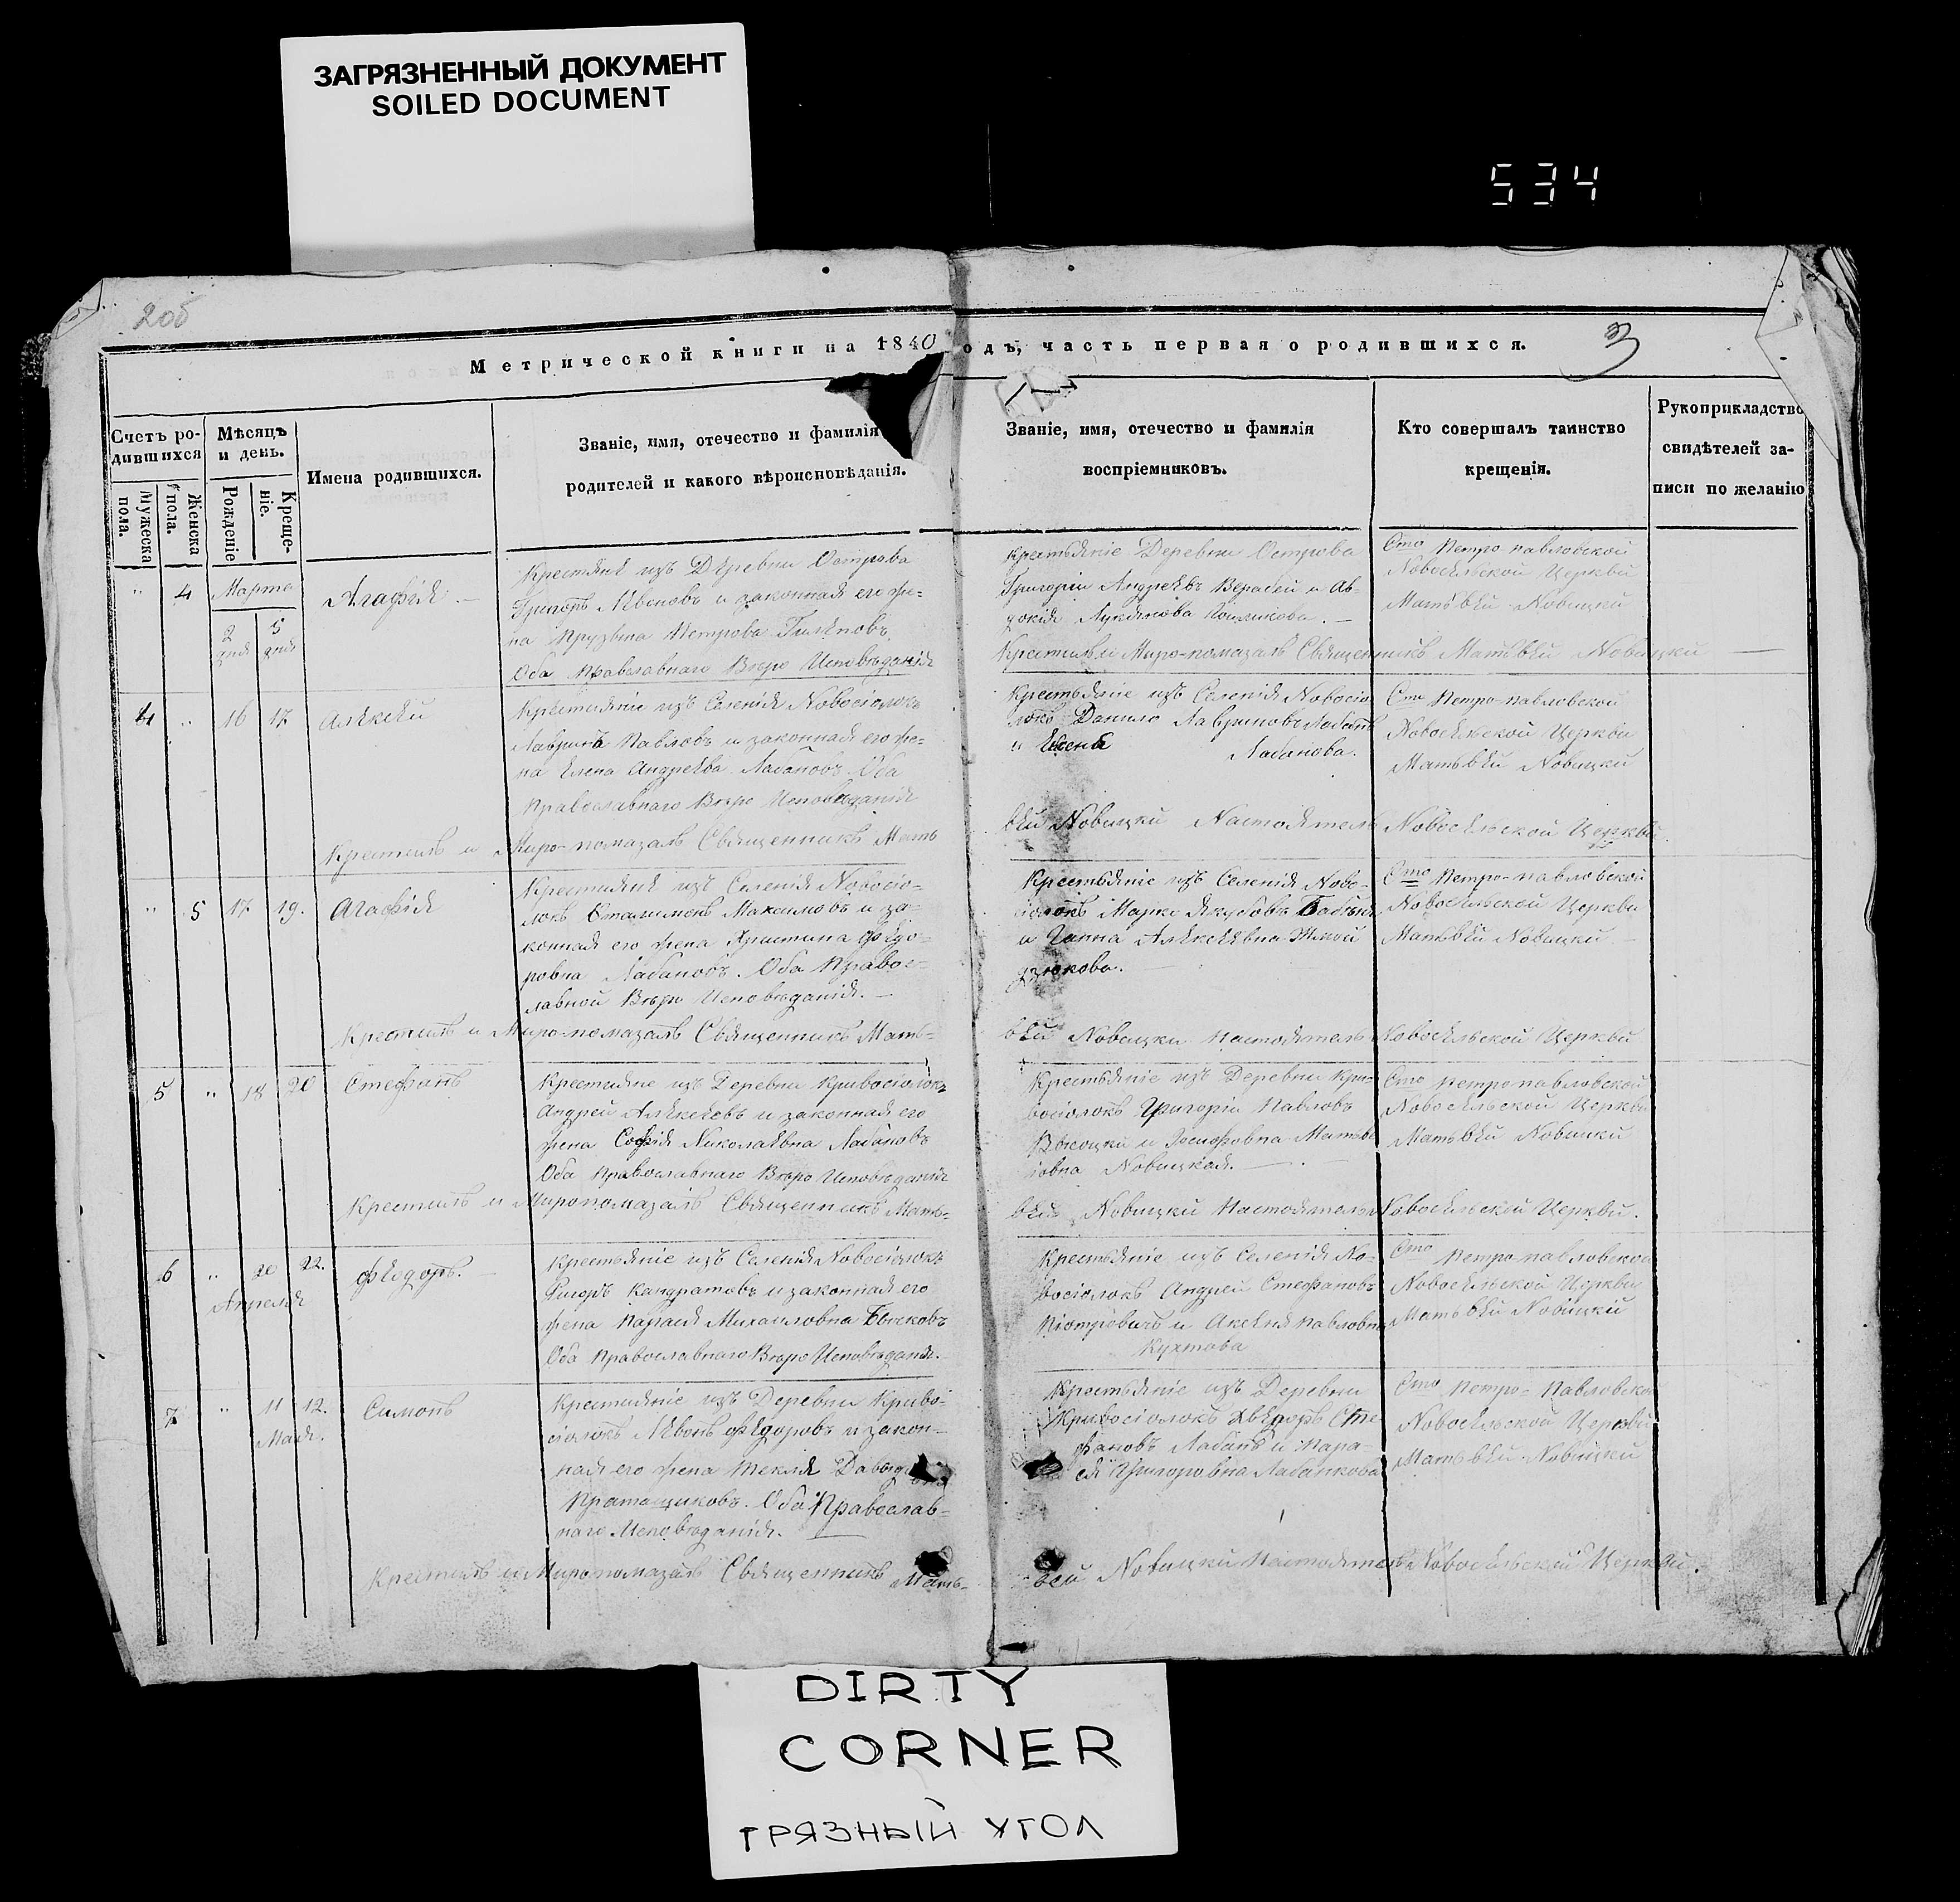 ЗАГРЯЗНЕННЫЙ ДОКУМЕНТ
SOILED DOCUMENT
534
2об
3
Метрической книги на 1840 одъ, часть первая о родившихся.
Счетъ ро-
дившихся
Мѣсяцъ
и день.
Мужеска
пола.
Женска
пола.
Рожденіе
Креще-
ніе.
Имена родившихся.
Званіе, имя, отечество и фамилія
родителей и какого вѣроисповѣданія.
Званіе, имя, отечество и фамилія
воспріемниковъ.
Кто совершалъ таинство
крещенія.
Рукоприкладство
свидѣтелей за-
писи по желанію
" 4 Марта
2 дня 5 дня
Агафія
Крестяне изъ Деревни Острова
Григоръ Левоновъ и законная его же-
на Прузына Петрова
Оба Православнаго Вѣро Исповѣданія
Крестьяніе Деревни Острова
Григорій Андреевъ Верабей и Ав-
докія Лукянова
Сто Петро павловской
Новосельской Церкви
Матьвей Новицкй
Крестилъ и Миро-помазалъ Священникъ Матьвей Новицкй
4 " 16 17 Алексей
Крестияніе изъ Селенія Новосіолокъ
Лавринъ Павловъ и законная его же-
на Елена Андреева Лабановъ Оба
Православнаго Вѣро Исповѣданія
Крестьяніе изъ Селенія Новосіо
локъ Данило Лавриновъ Лабанъ
и Лабанова.
Сто Петро-павловской
Новосельской Церкви
Матьвей Новицкй
Крестилъ и Миро-помазалъ Священникъ Мать
вей Новицкй Настоятель Новосельской Церкви.
" 5 17 19. Агафія
Крестияне изъ Селенія Новосіо-
локъ Максимовъ и за-
конная его жена Христина Федо-
ровна Лабановъ. Оба Правос-
лавной Вѣро Исповѣданія.
Крестьяніе изъ Селенія Ново-
сіолокъ Марко Якубовъ
и Ганна Алексеевна
Сто Петро-павловской
Новосельской Церкви
Матьвей Новицкй
Крестилъ и Миро-помазалъ Священникъ Мать-
вей Новицкй Настоятель Новосельской Церкви
5 " 18 20 Стефанъ
Крестияне изъ Деревни Кривосіолокъ
Андрей Алексеевъ и законная его
жена Софія Николаевна Лабановъ
Оба Православнаго Вѣро Исповѣданія
Крестьяніе изъ Деревни Кри-
восіолокъ Григорій Павловъ
Высоцкй и Іосифовна Матьве
іовна Новицкая.
Сто Петро павловской
Новосельской Церкви
Матьвей Новицкй
Крестилъ и Миропомазалъ Священникъ Мать-
вей Новицкй Настоятель Новосельской Церкви.
6 " 20 22. Федоръ.
Апреля
Крестьяніе изъ Селенія Новосіолокъ
Кандратовъ и законная его
жена Парася Михаиловна
Оба Православнаго Вѣро Исповѣданія.
Крестьяніе изъ Селенія Но-
восіолокъ Андрей Стефановъ
Піотровичъ и Аксеня Павловна
Кухтова
Сто Петро павловской
Новосельской Церкви
Матьвей Новицкій
7 " 11 12. Симонъ
Мая.
Крестияніе изъ Деревни Криво-
сіолокъ Левонъ Федоровъ и закон-
ная его жена Текля Давыдовна
Оба Православ-
наго Исповѣданія.
Крестьяніе изъ Деревни
Кривосіолокъ Хведоръ Сте
фановъ Лабанъ и Пара-
ся Григоровна Лабанкова
Сто Петро-Павловской
Новосельской Церкви
Матьвей Новицкй
Крестилъ и Миропомазалъ Священникъ Мать-
вей Новицкй Настоятель Новосельской Церкви.
DIRTY
CORNER
ГРЯЗНЫЙ УГОЛ